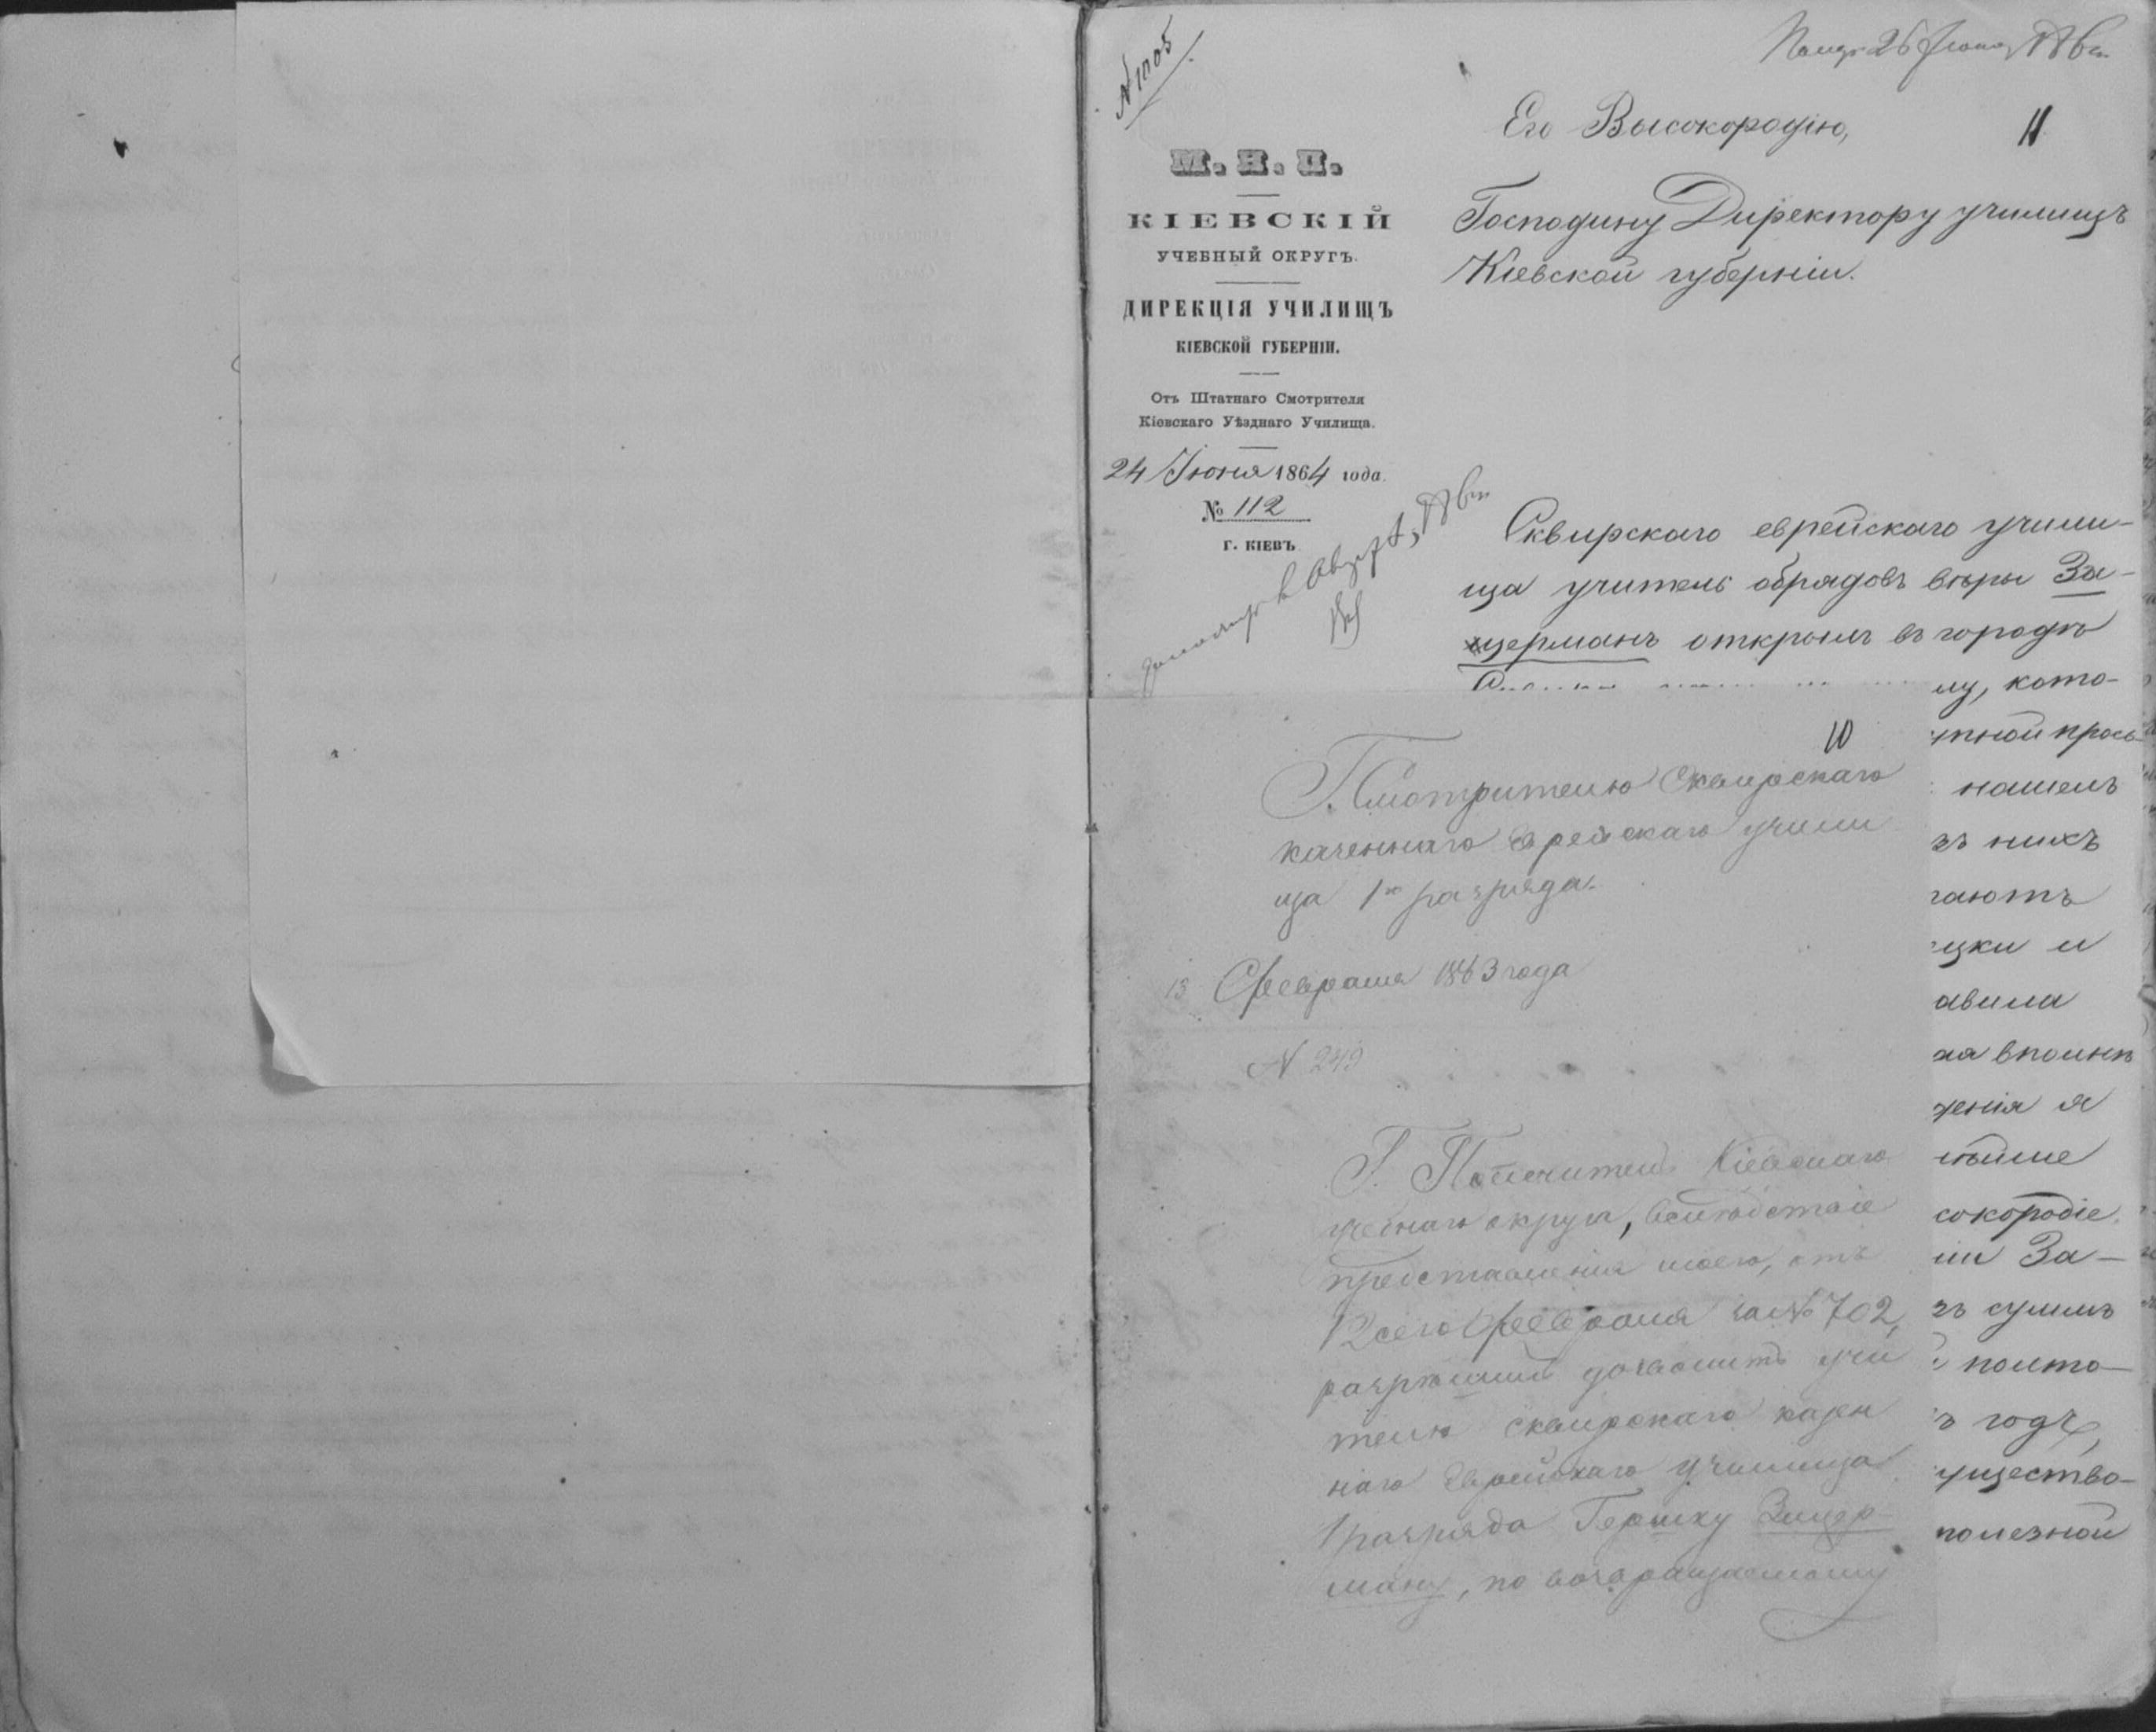 № 1005
26 Июня
11
М. Н. П.
КІЕВСКІЙ
УЧЕБНЫЙ ОКРУГЪ.
ДИРЕКЦІЯ УЧИЛИЩЪ
КІЕВСКОЙ ГУБЕРНІИ.
Отъ Штатнаго Смотрителя
Кіевскаго Уѣзднаго Училища.
24 Июня 1864 года.
№ 112
г. КІЕВЪ
Его Высокородію,
Господину Директору училищъ
Кіевской губерніи.
Сквирскаго еврейскаго учили-
ща учитель обрядовъ вѣры За-
церманъ открылъ въ городѣ
му, кото-
тной прось
нашелъ
зъ нихъ
гаютъ
цки и
авила
ая вполнѣ
женія я
нѣйше
сокородіе,
іи За-
зъ суммъ
полто-
ъ годъ,
уществo-
полезной
10
Г. Смотрителю Сквирскаго
казеннаго еврейскаго учили
ща 1го разряда.
13 Февраля 1863 года
№ 249
Г. Попечитель Кіевскаго
учебнаго округа, вслѣдствіе
представленія моего, отъ
12 сего Февраля за № 702,
разрѣшилъ дозволить учи
телю Сквирскаго казен
наго Еврейскаго училища
1 разряда Гершку Зацер
ману, по возвращаемому